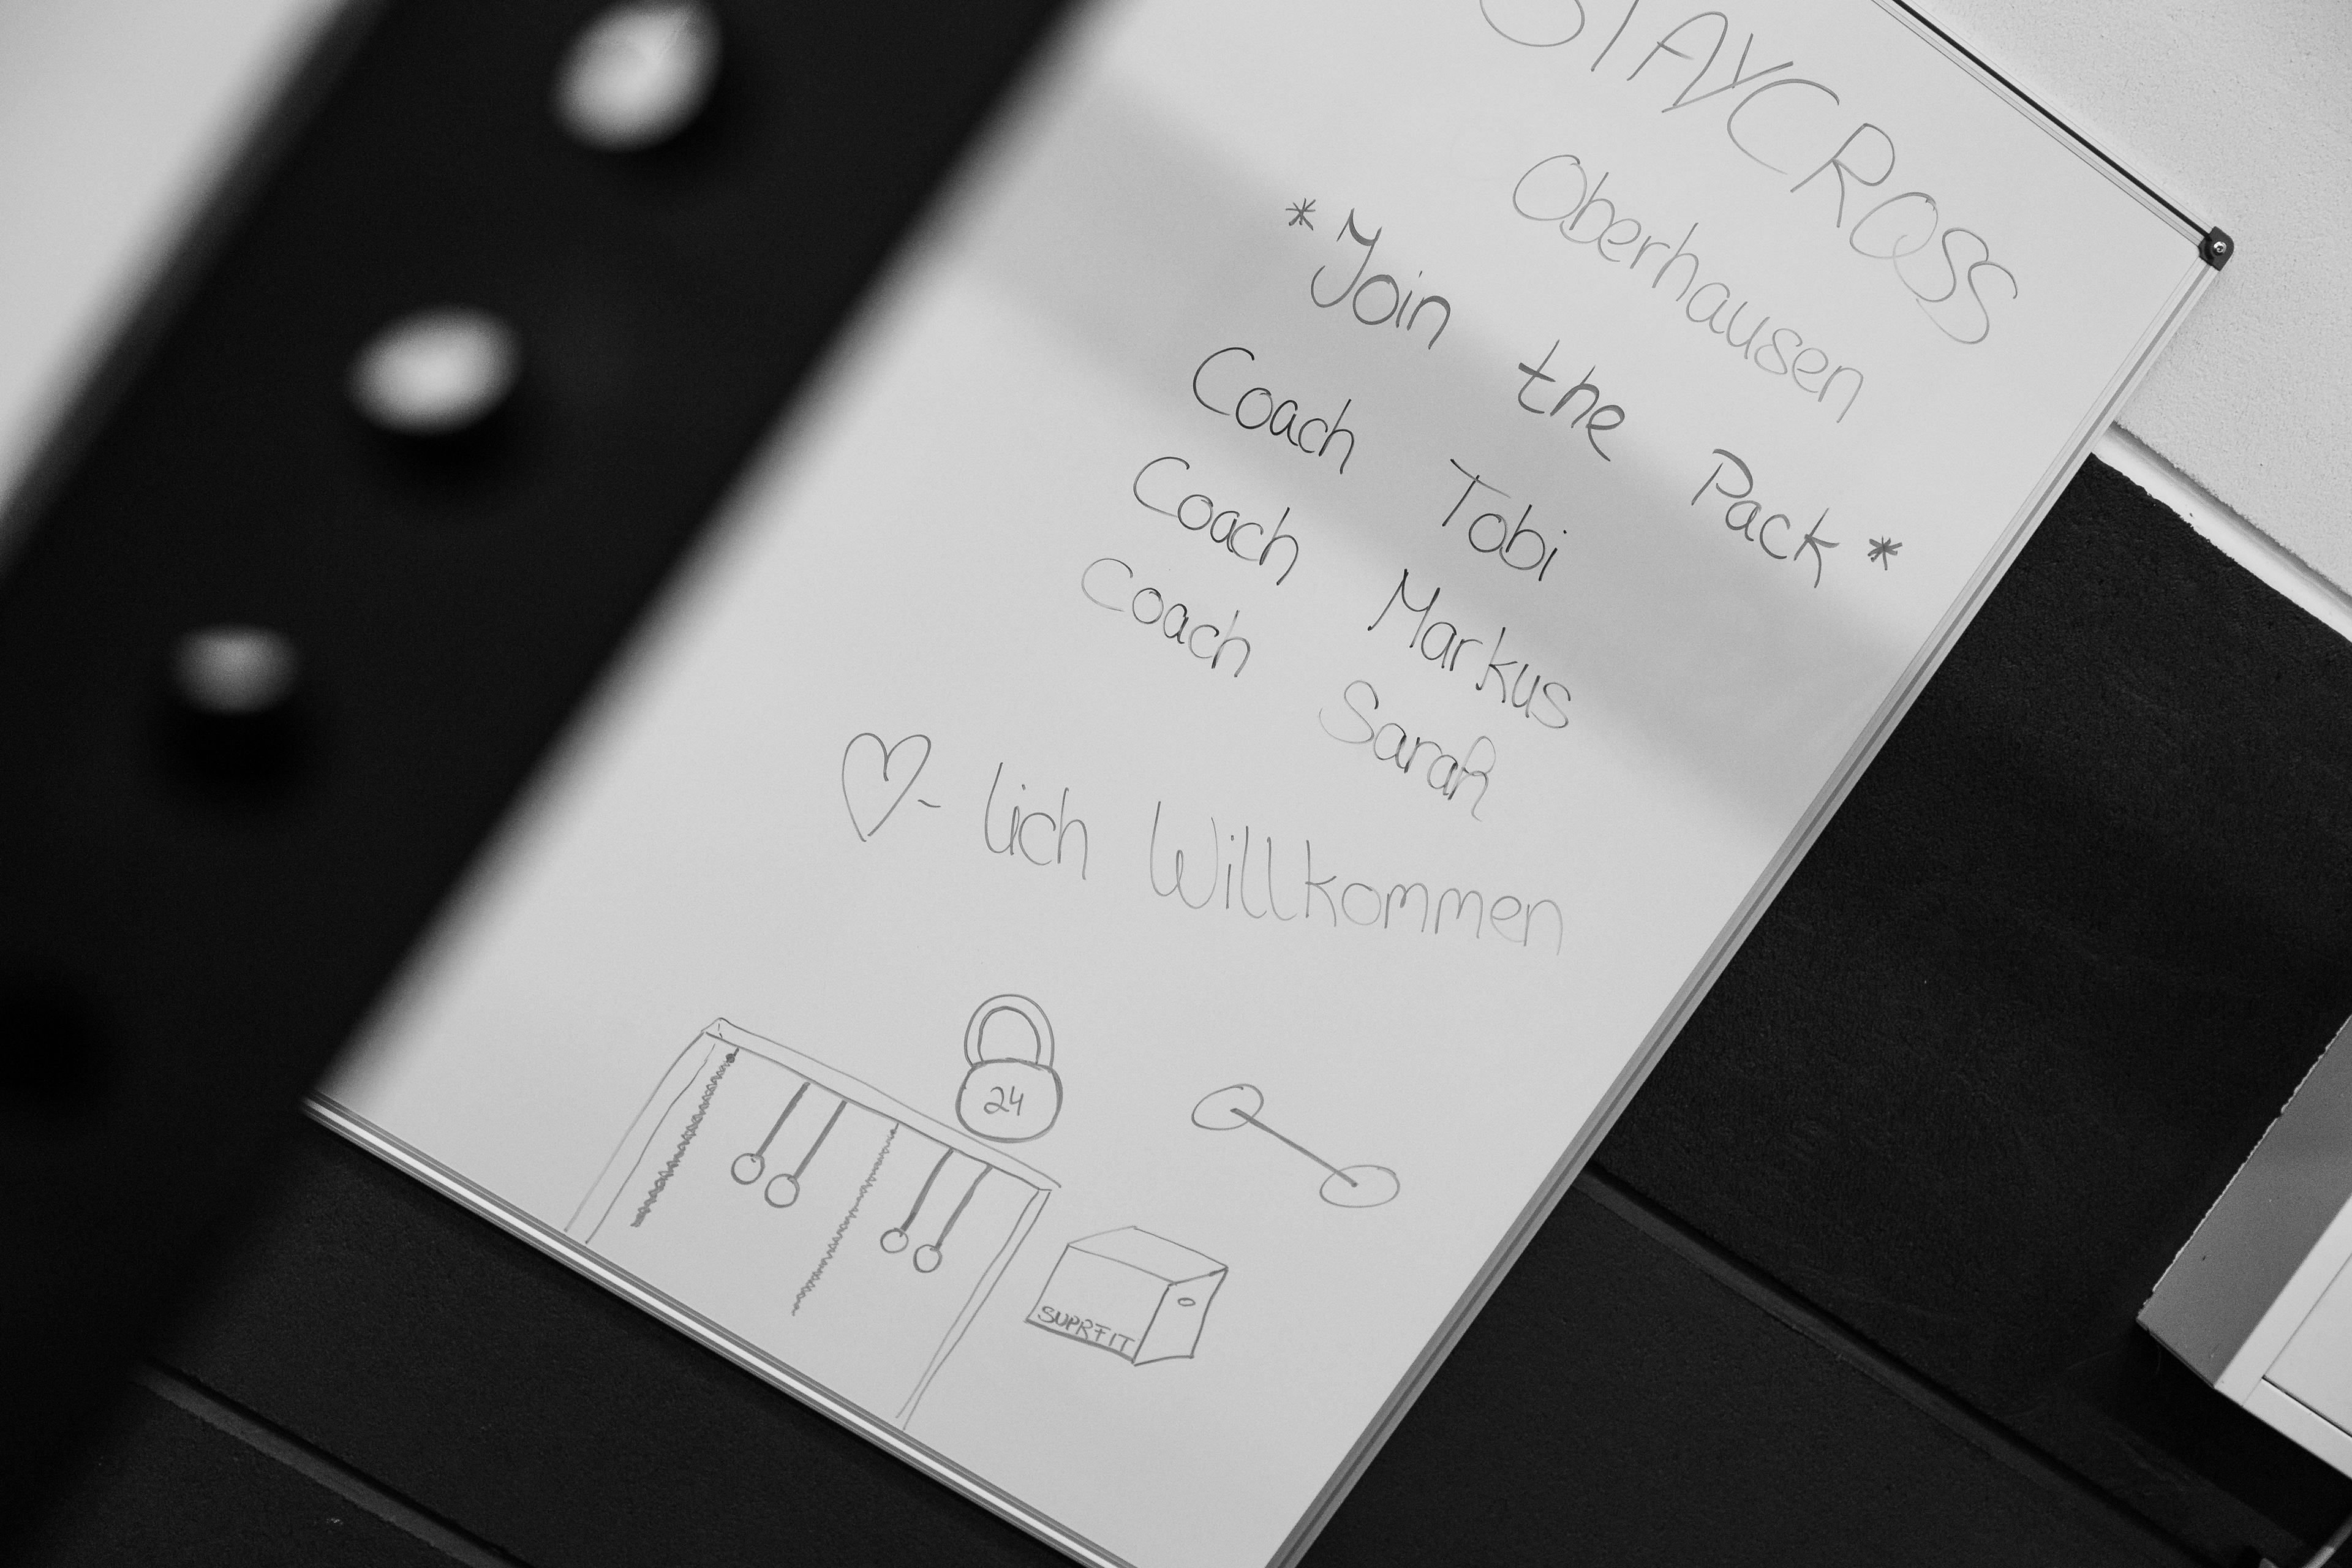 STAYCROSS
Oberhausen
*Join the Pack*
Coach Tobi
Coach Markus
Coach Sarah
♡-lich Willkommen
24
SUPRFIT